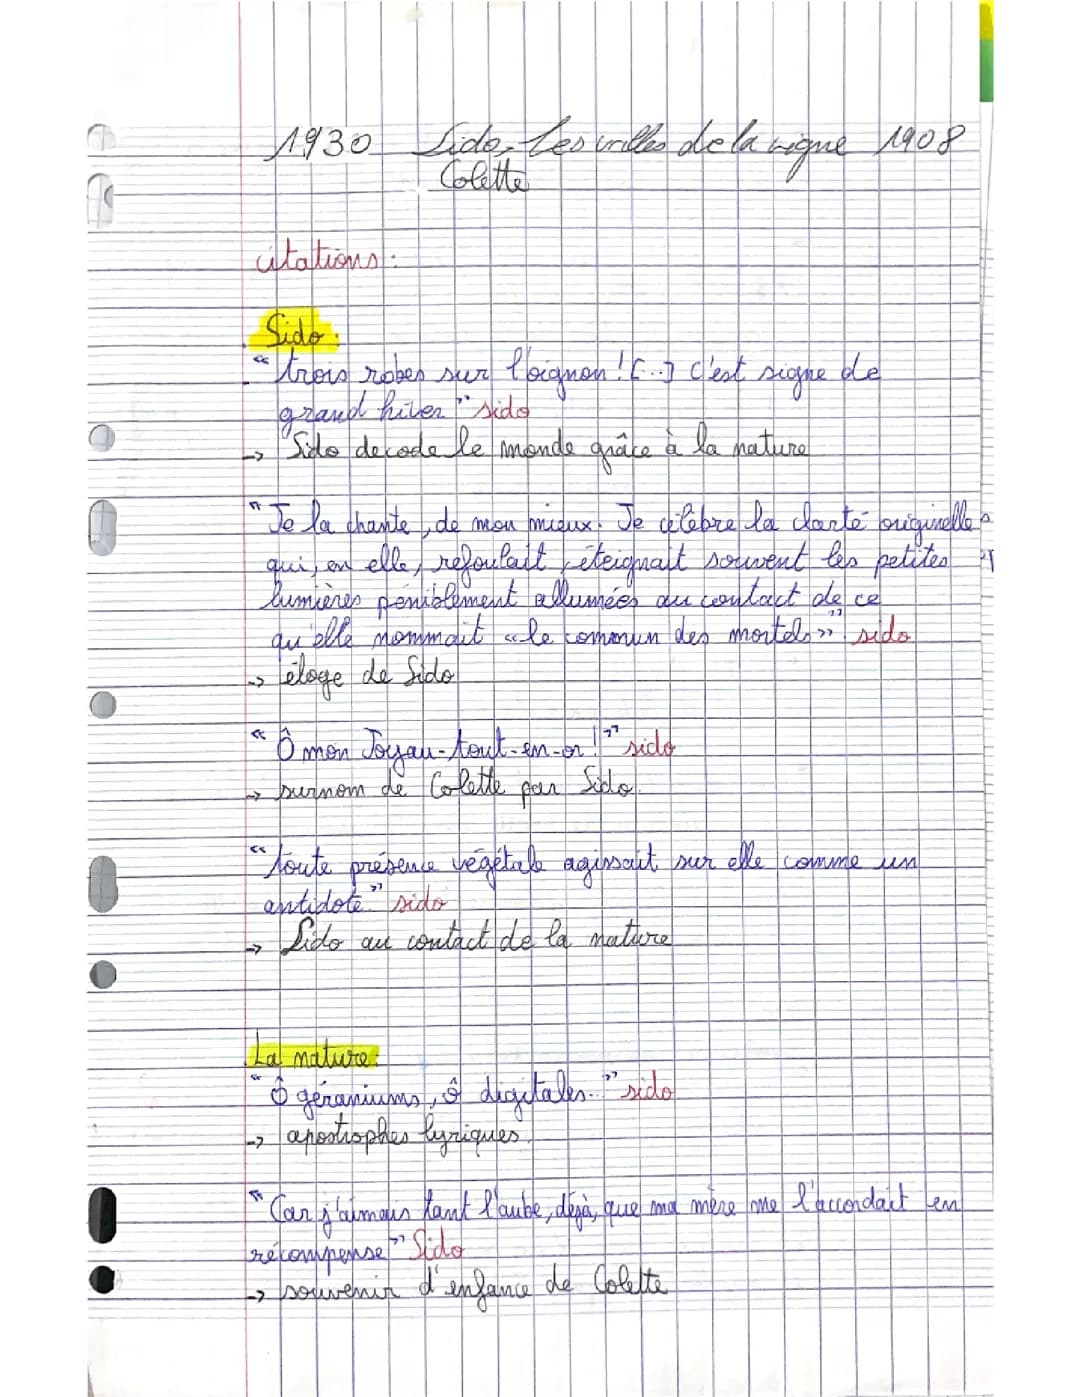 1930 Sido, Les vrilles de la vigne 1908
Colette
citations :
Sido :
"trois robes sur l'oignon ! [...] c'est signe de
grand hiver" sido
-> Sido decode le monde grâce à la nature
"Je la chante, de mon mieux. Je célèbre la clarté originelle
qui, en elle, refoulait, éteignait souvent les petites
lumières péniblement allumées au contact de ce
qu'elle nommait «le commun des mortels»" sido
-> éloge de Sido
"Ô mon Joyau-tout-en-or !" sido
-> surnom de Colette par Sido
"toute présence végétale agissait sur elle comme un
antidote" sido
-> Sido au contact de la nature
La nature :
"Ô géraniums, ô digitales..." sido
-> apostrophes lyriques
"Car j'aimais tant l'aube, déjà, que ma mère me l'accordait en
récompense" Sido
-> souvenir d'enfance de Colette